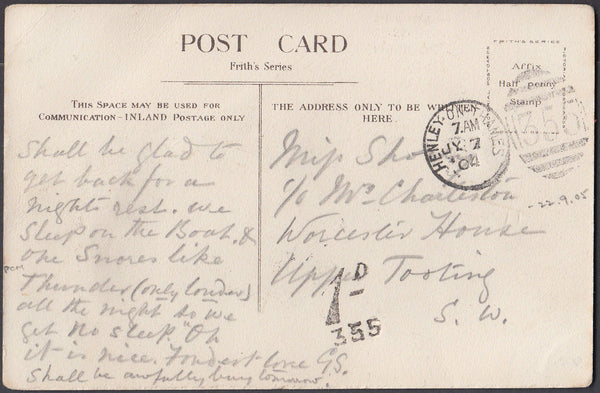 POST CARD
Frith's Series
THIS SPACE MAY BE USED FOR
COMMUNICATION - INLAND POSTAGE ONLY
THE ADDRESS ONLY TO BE WRITTEN
HERE.
FRITH'S SERIES
POSTCARDS
Affix
Half Penny
Stamp
355
HENLEY-ON-THAMES
7. AM
JY 7
04
Shall be glad to
get back for a
nights rest. we
sleep on the Boat. &
one Snores like
Thunder (only louder)
all the night so we
get No sleep "Oh
it is nice. Fondest love GS.
Shall be awfully busy tomorrow.
Miss
c/o Mrs Charleston
Worcester House
Upper Tooting
S. W.
- 22.9.05
1D
355